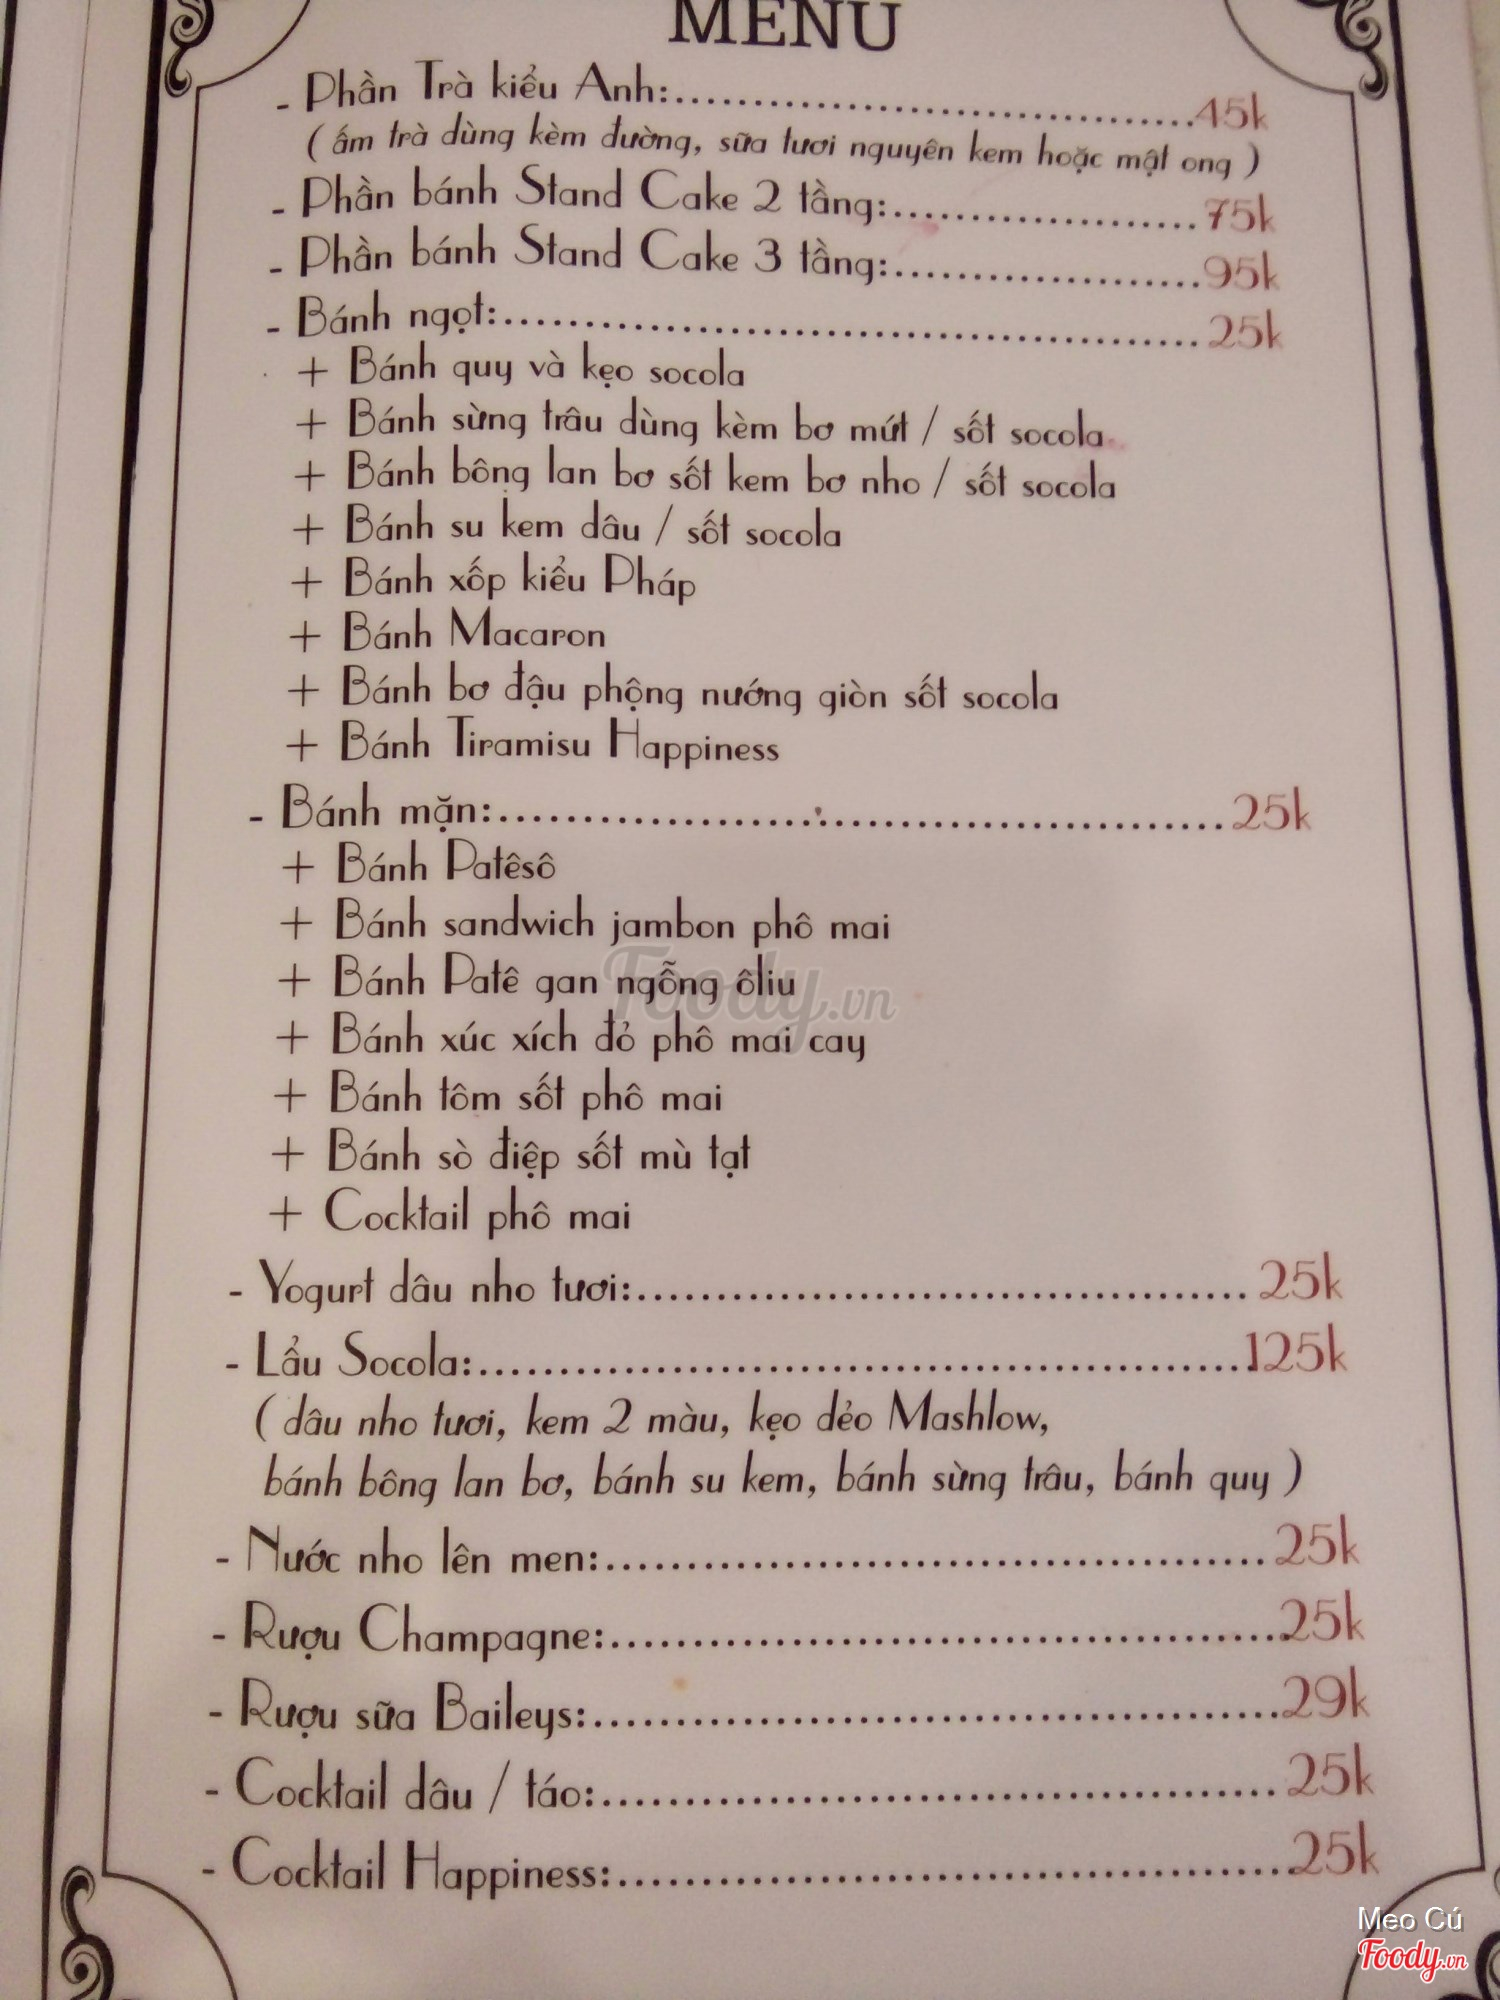 MENU
- Phần Trà kiểu Anh:..................................45k
( ấm trà dùng kèm đường, sữa tươi nguyên kem hoặc mật ong )
- Phần bánh Stand Cake 2 tầng:....................75k
- Phần bánh Stand Cake 3 tầng:....................95k
- Bánh ngọt:............................................25k
+ Bánh quy và kẹo socola
+ Bánh sừng trâu dùng kèm bơ mứt / sốt socola
+ Bánh bông lan bơ sốt kem bơ nho / sốt socola
+ Bánh su kem dâu / sốt socola
+ Bánh xốp kiểu Pháp
+ Bánh Macaron
+ Bánh bơ đậu phộng nướng giòn sốt socola
+ Bánh Tiramisu Happiness
- Bánh mặn:.............................................25k
+ Bánh Patêsô
+ Bánh sandwich jambon phô mai
+ Bánh Patê gan ngỗng ôliu
+ Bánh xúc xích đỏ phô mai cay
+ Bánh tôm sốt phô mai
+ Bánh sò điệp sốt mù tạt
+ Cocktail phô mai
- Yogurt dâu nho tươi:....................................... 25k
- Lẩu Socola:.................................................125k
( dâu nho tươi, kem 2 màu, kẹo dẻo Mashlow,
bánh bông lan bơ, bánh su kem, bánh sừng trâu, bánh quy )
- Nước nho lên men:.......................................... 25k
- Rượu Champagne:..........................................25k
- Rượu sữa Baileys:...........................................29k
- Cocktail dâu / táo:.......................................... 25k
- Cocktail Happiness:..........................................25k
Foody.vn
Meo Cú
Foody.vn